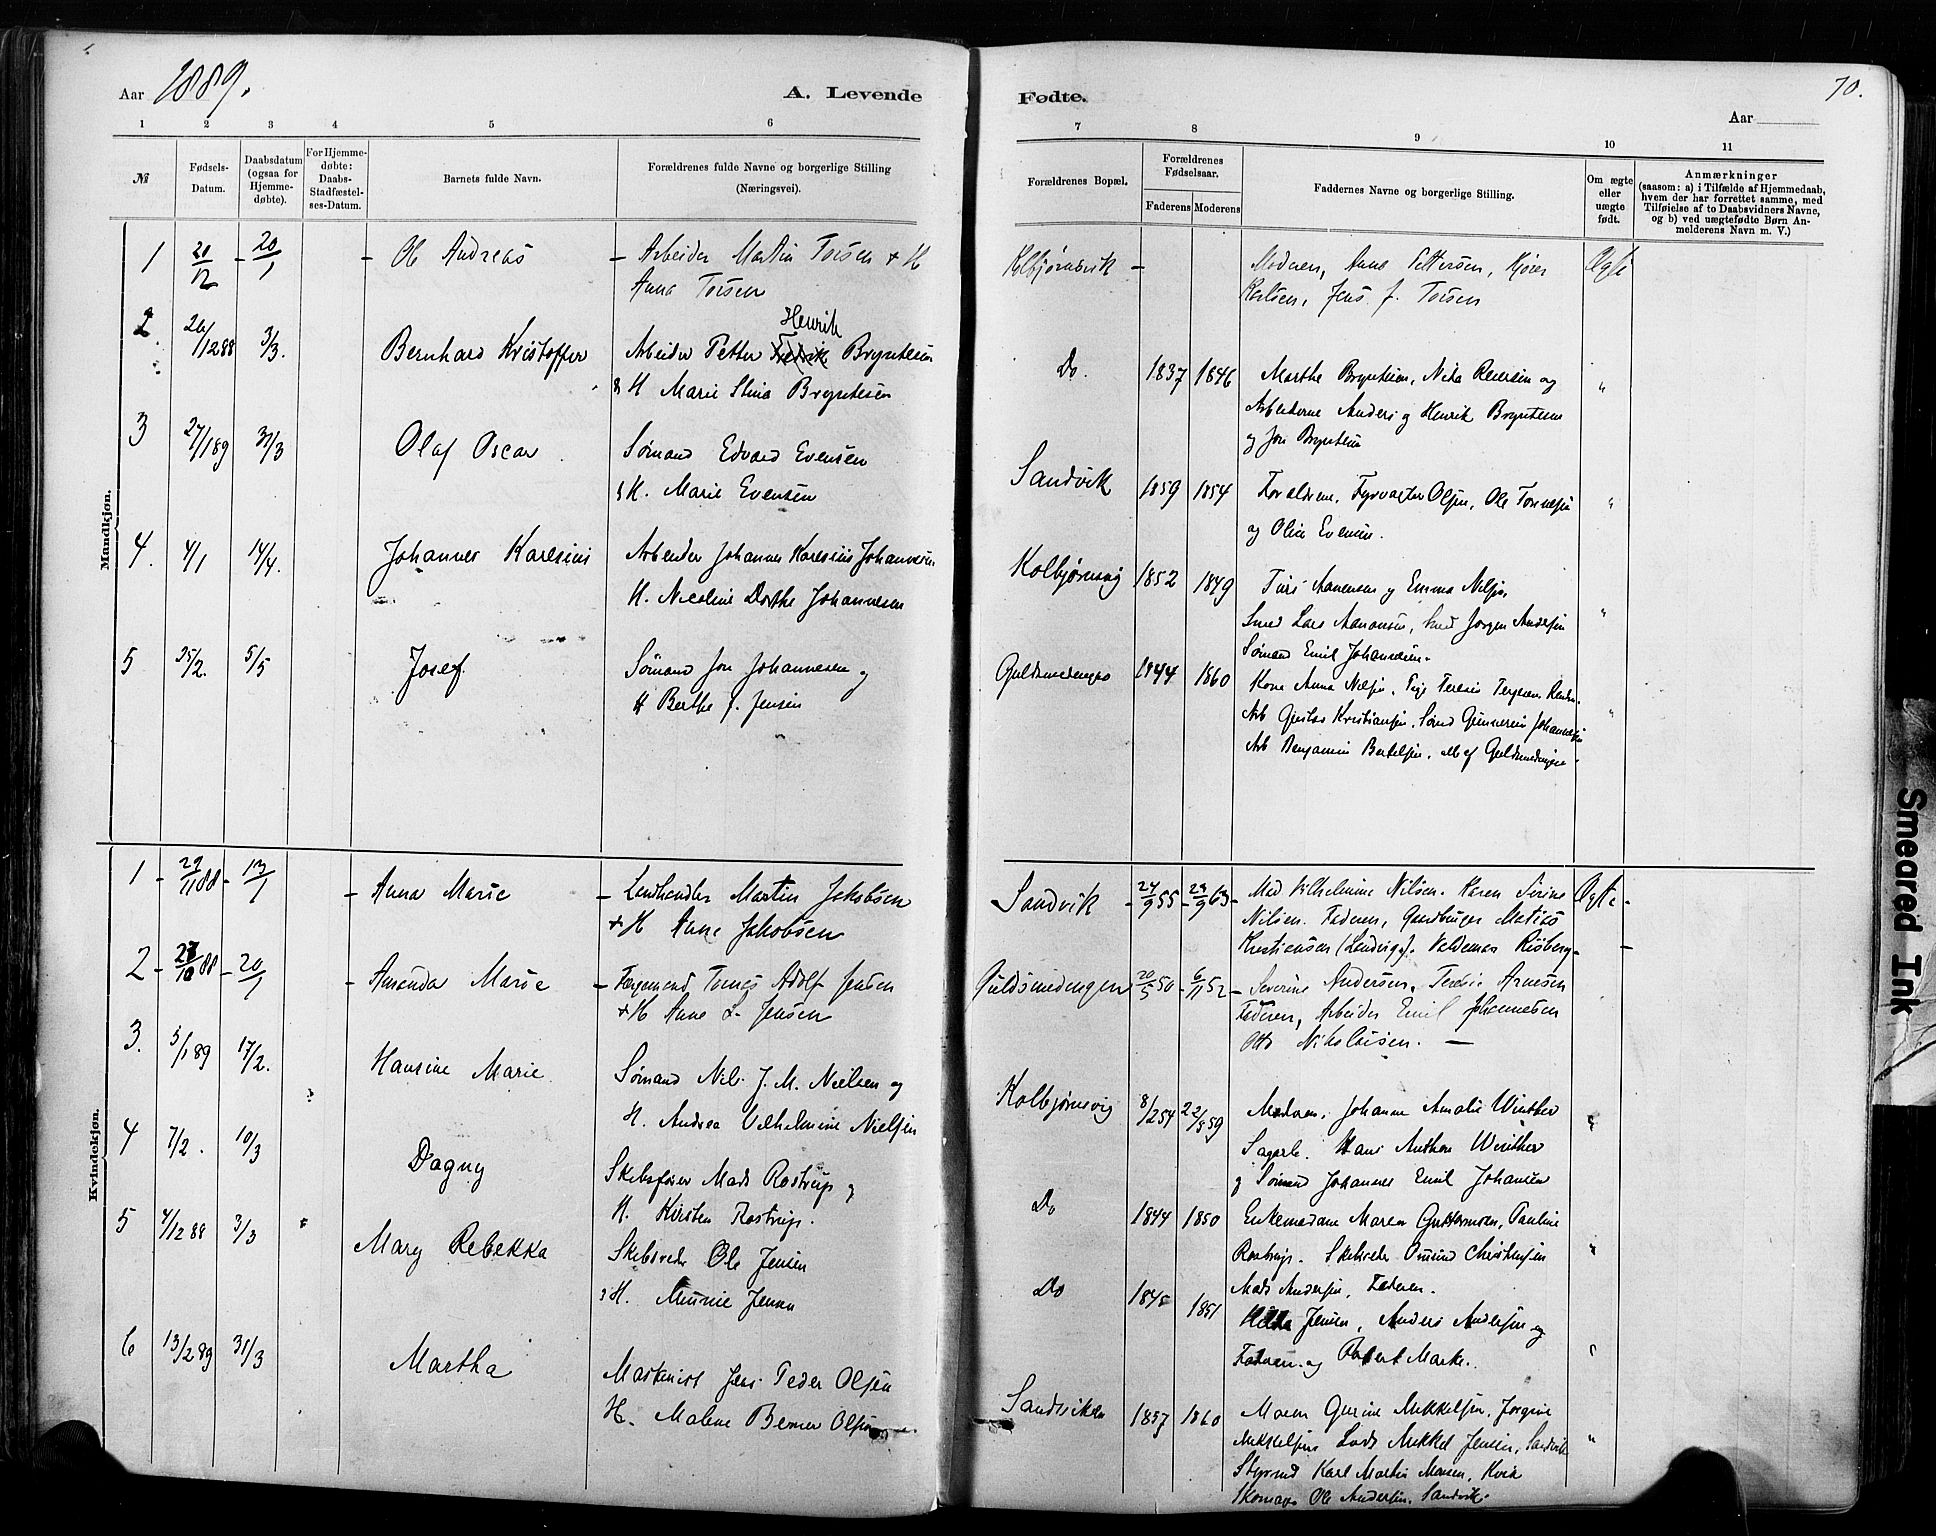 Aar 1889.
A. Levende
Fødte.
70.
Aar
1 2 3 4 5 6 7 8 9 10 11
№
Fødsels-
Datum.
Daabsdatum
(ogsaa for
Hjemme-
døbte).
For Hjemme-
døbte:
Daabs-
Stadfæstel-
ses-Datum.
Barnets fulde Navn.
Forældrenes fulde Navne og borgerlige Stilling
(Næringsvei).
Forældrenes Bopæl.
Forældrenes
Fødselsaar.
Faderens Moderens
Faddernes Navne og borgerlige Stilling.
Om ægte
eller
uægte
født.
Anmærkninger
(saasom: a) i Tilfælde af Hjemmedaab,
hvem der har forrettet samme, med
Tilføielse af to Daabsvidners Navne,
og b) ved uægtefødte Børn An-
melderens Navn m. V.)
Mandkjøn.
1 20/12 - 20/1 - Ole Andreas - Arbeider Martin Torsen + H
Anna Torsen
Kolbjørnsvik -
Moderen, Anne Pettersen,
Karlsen, Jens J. Torsen
Ægte
2. 26/12 88 3/3. Bernhard Kristoffer
Henrik
Arbeider Petter Bryntesen
& H Marie Stina Bryntesen
Do. 1837 1846
Marthe Bryntesen,
Arbeiderne Anders og Henrik Bryntesen
og Bryntesen
"
3 27/1 89 31/3 Olaf Oscar
Sømand Edvard Evensen
& H. Marie Evensen
Sandvik 1859 1854
Forældrene, Fyrvogter Olsen, Ole
og Olise Evensen.
"
4. 4/1 14/4. Johannes Karelius
Arbeider Johannes Karelius Johannesen
H. Nicoline Dorthe Johannesen
Kolbjørnsvig 1852 1849
Aanensen og Emma Nilsen,
Smed Lars Aanonsen, Smed Jørgen Andersen
Sømand Emil Johannesen.
"
5 25/2. 5/5 Josef
Sømand Jon Johannesen og
H Berthe J. Jensen
Guldsmedengen 1844 1860
Kone Anna Nilsen, Pige Teresie Terjesen
Arb Gustav Kristiansen, Johannesen
Arb Benjamin Bertelsen, alle af Guldsmedengen.
"
Kvindekjøn.
1 - 29/11 88 - 13/1 - Anna Marie
- Landhandler Martin Jakobsen
+ H Anne Jakobsen
Sandvik - 24/9 55 - 23/9 63 -
Mad Vilhelmine Nilsen. Karen Sirine
Nilsen. Faderen, Gaardbruger Matias
Kristiansen (Landvig). Valdemar Risberg -
Ægte -
2 - 27/10 88 - 20/1 - Amanda Marie
- Færgemand Tomas Adolf Jensen
+ H Anne L. Jensen
Guldsmedengen 20/5 50 - 6/11 52 -
Severine Andersen, Teresie Arnesen
Faderen, Arbeider Emil Johannesen
Otto Nikolaisen. -
3. 5/1 89 17/2. Hansine Marie
Sømand Nils J. M. Nielsen og
H. Andrea Vilhelmine Nielsen
Kolbjørnsvig 8/2 54 22/8 59
Moderen, Johanne Amalie Winther
Sagarb. Hans Anthon Winther
og Sømand Johannes Emil Johansen
"
4 7/2. 10/3 Dagny
Skibsfører Mads Rostrup og
H. Kirsten Rostrup.
Do 1844 1850
Enkemadame Maren Guttormsen, Pauline
Rostrup. Skibsreder Omund Christensen
Mads Andersen, Faderen.
"
5 4/12 88 3/3 Mary Rebekka
Skibsreder Ole Jensen
& H. Jensen
Do 1845 1851
Jensen, Anders Andersen og
Faderen og Robert Marke.
"
6 13/2 89 31/3 Martha
Maskinist Jens Peder Olsen
H. Malene Berner Olsen
Sandviken 1857 1860
Maren Gurine Mikkelsen, Jorgine
Mikkelsen Lods Mikkel Jensen, Sandvik
Styrmd Karl Martin Monsen,
Skomager Ole Andersen. Sandvik.
"
Smeared Ink